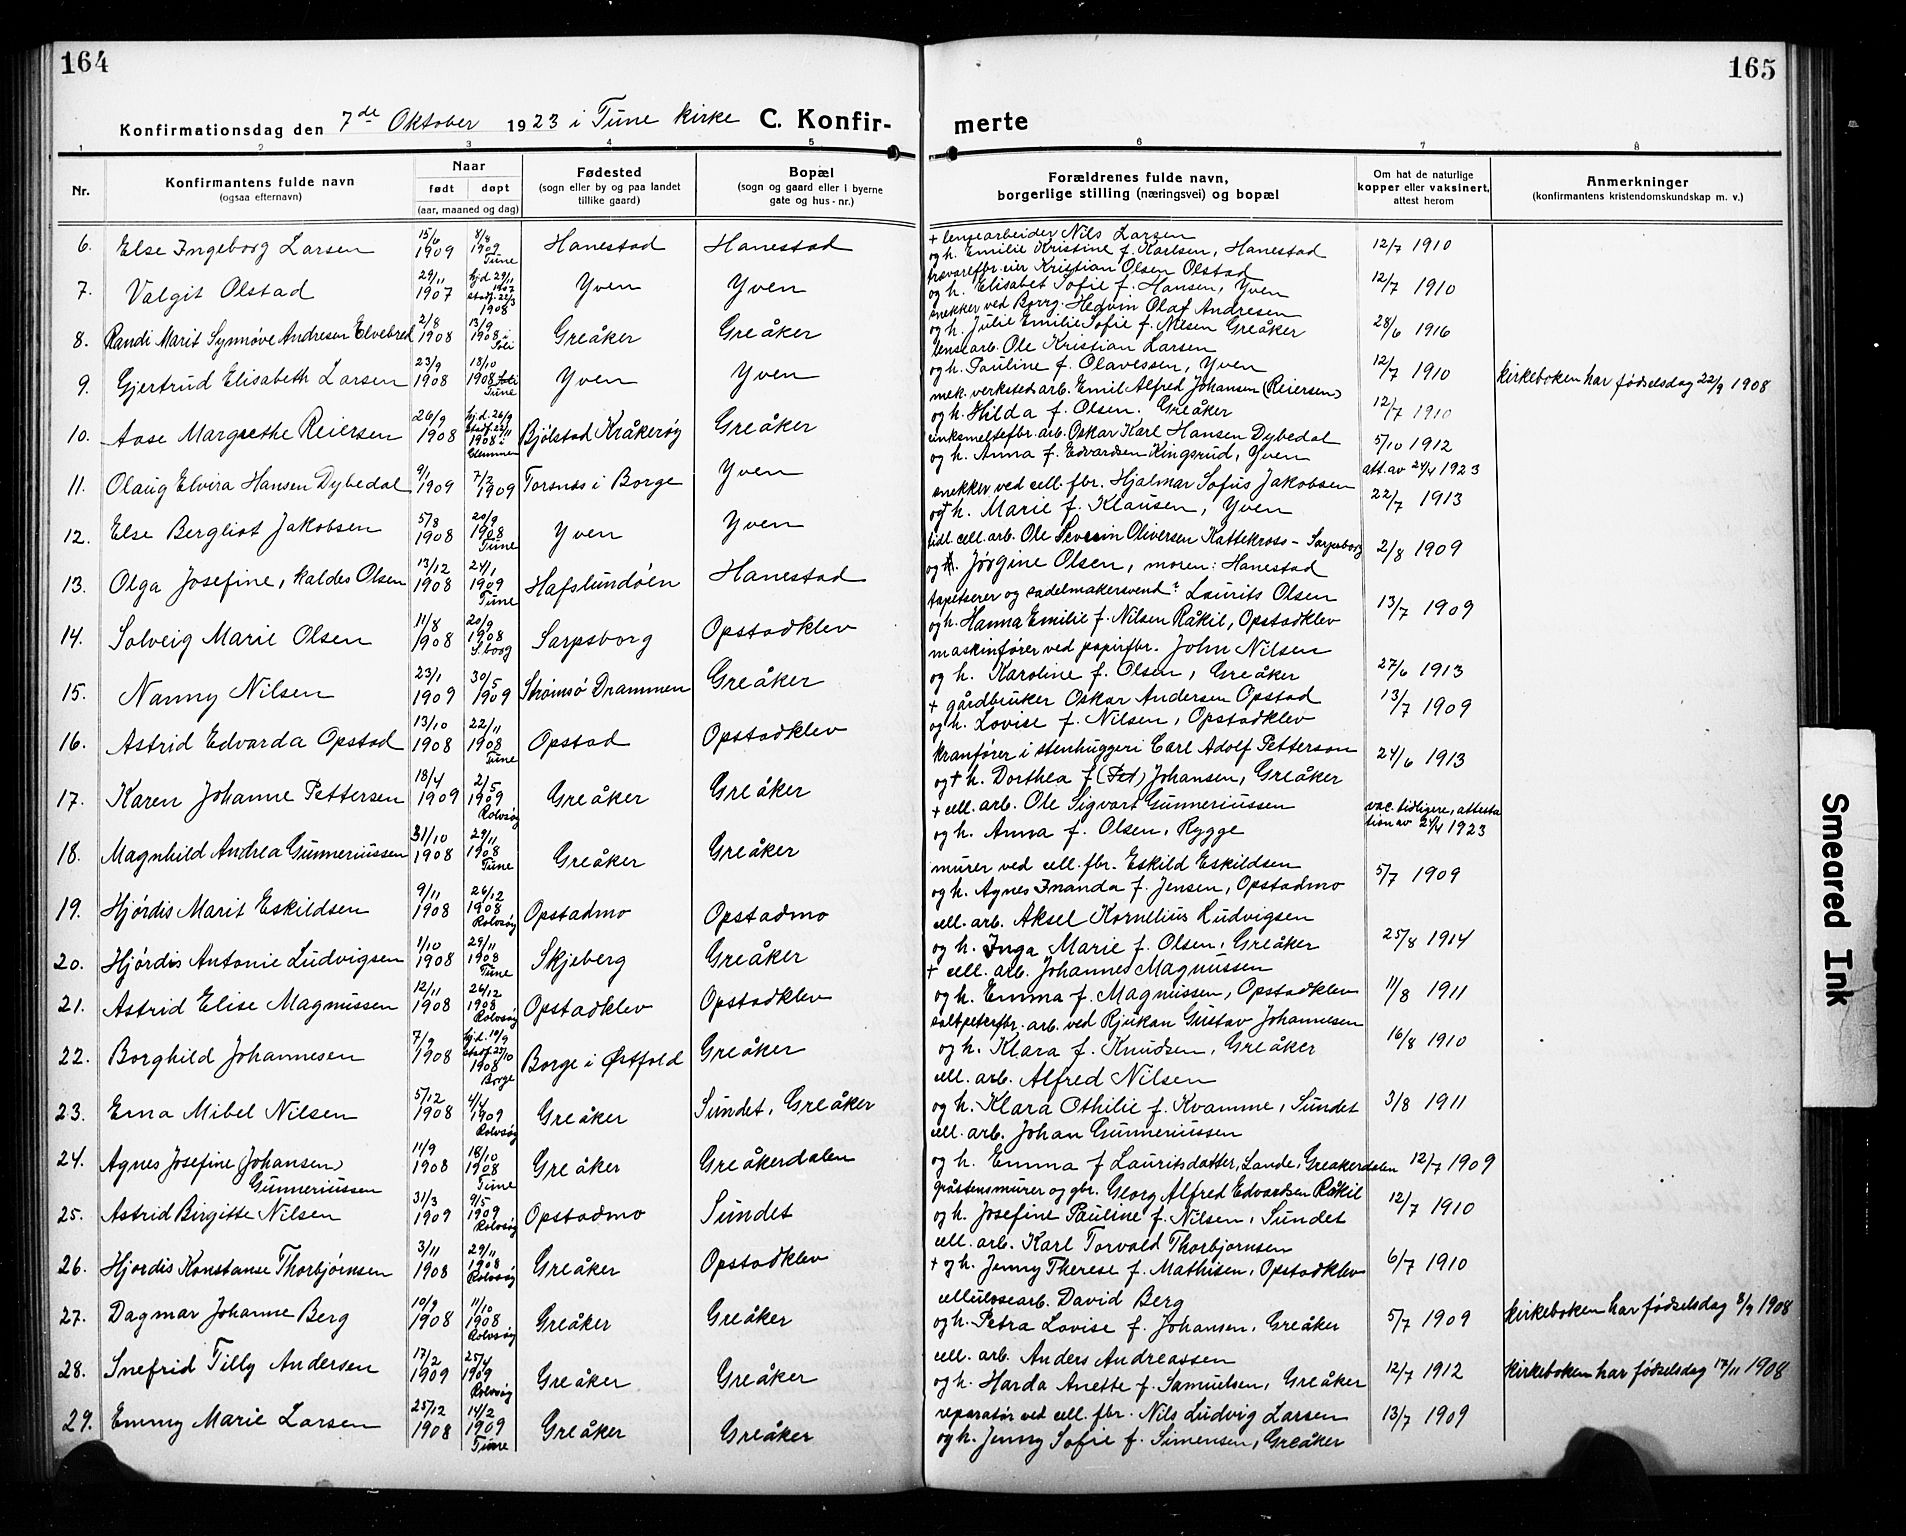 164
165
Konfirmationsdag den 7de Oktober 1923 i Tune kirke C. Konfir-
merte
1 2 3 4 5 6 7 8
Nr.
Konfirmantens fulde navn
(ogsaa efternavn)
Naar
født døpt
(aar, maaned og dag)
Fødested
(sogn eller by og paa landet
tillike gaard)
Bopæl
(sogn og gaard eller i byerne
gate og hus-nr.)
Forældrenes fulde navn,
borgerlige stilling (næringsvei) og bopæl
Om hat de naturlige
kopper eller vaksinert,
attest herom
Anmerkninger
(konfirmantens kristendomskundskap m. v.)
6. Else Ingeborg Larsen 15/6 1909 8/8 1909 Tune Hanestad Hanestad
+ lensearbeider Nils Larsen
og h. Emilie Kristine f. Karlsen, Hanestad 12/7 1910
7. Valgit Olstad 29/11 1907 hjd. 29/11 1907 stadf. 22/3 1908 Yven Yven
trævarefbr. eier Kristian Olsen Olstad
og h. Elisabet Sofie f. Hansen, Yven 12/7 1910
8. Randi Marit Synnøve Andresen Elvebrek 2/8 1908 13/9 1908 i Soli Greåker Greåker
snekker ved Borrg. Hedvin Olaf Andresen
og h. Julie Emilie Sofie f. Nilsen Greåker 28/6 1916
9. Gjertrud Elisabeth Larsen 23/9 1908 18/10 1908 Soli Tune Yven Yven
lensearb. Ole Kristian Larsen
og h. Pauline f. Olavessen, Yven 12/7 1910 Kirkeboken har fødselsdag 22/9 1908
10. Aase Margrethe Reiersen 26/9 1908 hj.d. 26/9 stadf. 22/11 1908 Glemmen Bjølstad Kråkerøy Greåker
mek. verksted arb. Emil Alfred Johansen (Reiersen)
og h. Hilda f. Olsen. Greåker 12/7 1910
11. Olaug Elvira Hansen Dybedal 9/1 1909 7/2 1909 Torsnæs i Borge Yven
sinksmeltefbr. arb. Oskar Karl Hansen Dybedal
og h. Anna f. Edvardsen Kingsrud, Yven 5/10 1912
att. av 24/4 1923
12. Else Bergliot Jakobsen 5/8 1908 20/9 1908 Tune Yven Yven
snekker ved cell. fbr. Hjalmar Sofus Jakobsen
og + h. Marie f. Klausen, Yven 22/7 1913
13. Olga Josefine, kaldes Olsen 13/12 1908 24/1 1909 Tune Hafslundöen Hanestad
tidl. cell. arb. Ole Severin Oliversen Kattekross - Sarpsborg
og Jørgine Olsen, moren: Hanestad 2/8 1909
14. Solveig Marie Olsen 11/8 1908 20/9 1908 S.borg Sarpsborg Opstadklev
tapetserer og sadelmakersvend Laurits Olsen
og h. Hanna Emilie f. Nilsen Råkil, Opstadklev 13/7 1909
15. Nanny Nilsen 23/1 1909 30/5 1909 Strømsø Drammen Greåker
maskinfører ved papirfbr. John Nilsen
og h. Karoline f. Olsen, Greåker 27/6 1913
16. Astrid Edvarda Opstad 13/10 1908 22/11 1908 Tune Opstad Opstadklev
+ gårdbruker Oskar Andersen Opstad
og h. Lovise f. Nilsen, Opstadklev 13/7 1909
17. Karen Johanne Pettersen 18/4 1909 2/5 1909 Rolvsøy Greåker Greåker
kranfører i stenhuggeri Carl Adolf Petterson
og + h. Dorthea f. (Pet) Johansen, Greåker 24/6 1913
18. Magnhild Andrea Gunneriussen 31/10 1908 29/11 1908 Tune Greåker Greåker
+ cell. arb. Ole Sigvart Gunneriussen
og h. Anna f. Olsen, Rygge vac. tidligere, attesta
tion av 24/4 1923
19. Hjördis Marit Eskildsen 9/11 1908 26/12 1908 Rolvsøy Opstadmo Opstadmo
murer ved cell. fbr. Eskild Eskildsen
og h. Agnes Inanda f. Jensen, Opstadmo 5/7 1909
20. Hjördis Antonie Ludvigsen 1/10 1908 29/11 1908 Tune Skjeberg Greåker
cell. arb. Aksel Kornelius Ludvigsen
og h. Inga Marie f. Olsen, Greåker 25/8 1914
21. Astrid Elise Magnussen 12/11 1908 26/12 1908 Rolvsøy Opstadklev Opstadklev
+ cell. arb. Johannes Magnussen
og h. Emma f. Magnussen, Opstadklev 11/8 1911
22. Borghild Johannesen 7/9 1908 hj.d. 19/9 stadf. 25/10 1908 Borge Borge i Østfold Greåker
saltpeterfbr. arb. ved Rjukan Gustav Johannesen
og h. Klara f. Knudsen, Greåker 16/8 1910
23. Erna Mibel Nilsen 5/12 1908 4/4 1909 Rolvsøy Greåker Sundet, Greåker
cell. arb. Alfred Nilsen
og h. Klara Othilie f. Kvamme, Sundet 3/8 1911
24. Agnes Josefine (Johansen)
Gunneriussen 11/9 1908 18/10 1908 Tune Greåker Greåkerdalen
cell. arb. Johan Gunneriussen
og h. Emma f. Lauritsdatter, Lande, Greakerdalen 12/7 1909
25. Astrid Birgitte Nilsen 31/3 1909 9/5 1909 Rolvsøy Opstadmo Sundet
gråstensmurer og gbr. Georg Alfred Edvardsen Råkil
og h. Josefine Pauline f. Nilsen, Sundet 12/7 1910
26. Hjordis Konstanse Thorbjørnsen 3/11 1908 29/11 1908 Rolvsøy Greåker Opstadklev
cell. arb. Karl Torvald Thorbjornsen
+ og h. Jenny Therese f. Mathisen, Opstadklev 6/7 1910
27. Dagmar Johanne Berg 10/9 1908 11/10 1908 Rolvsøy Greåker Greåker
cellulosearb. David Berg
og h. Petra Lovise f. Johansen, Greåker 5/7 1909 Kirkeboken har fødselsdag 8/9 1908
28. Snefrid Tilly Andersen 17/2 1909 25/4 1909 Rolvsøy Greåker Greåker
cell. arb. Anders Andreassen
og h. Harda Anette f. Samuelsen, Greåker 12/7 1912 Kirkeboken har fødselsdag 17/11 1908
29. Emmy Marie Larsen 25/12 1908 14/2 1909 Tune Greåker Greåker
reparatør ved cell. fbr. Nils Ludvig Larsen
og h. Jenny Sofie f. Simensen, Greåker 13/7 1909
Smeared Ink